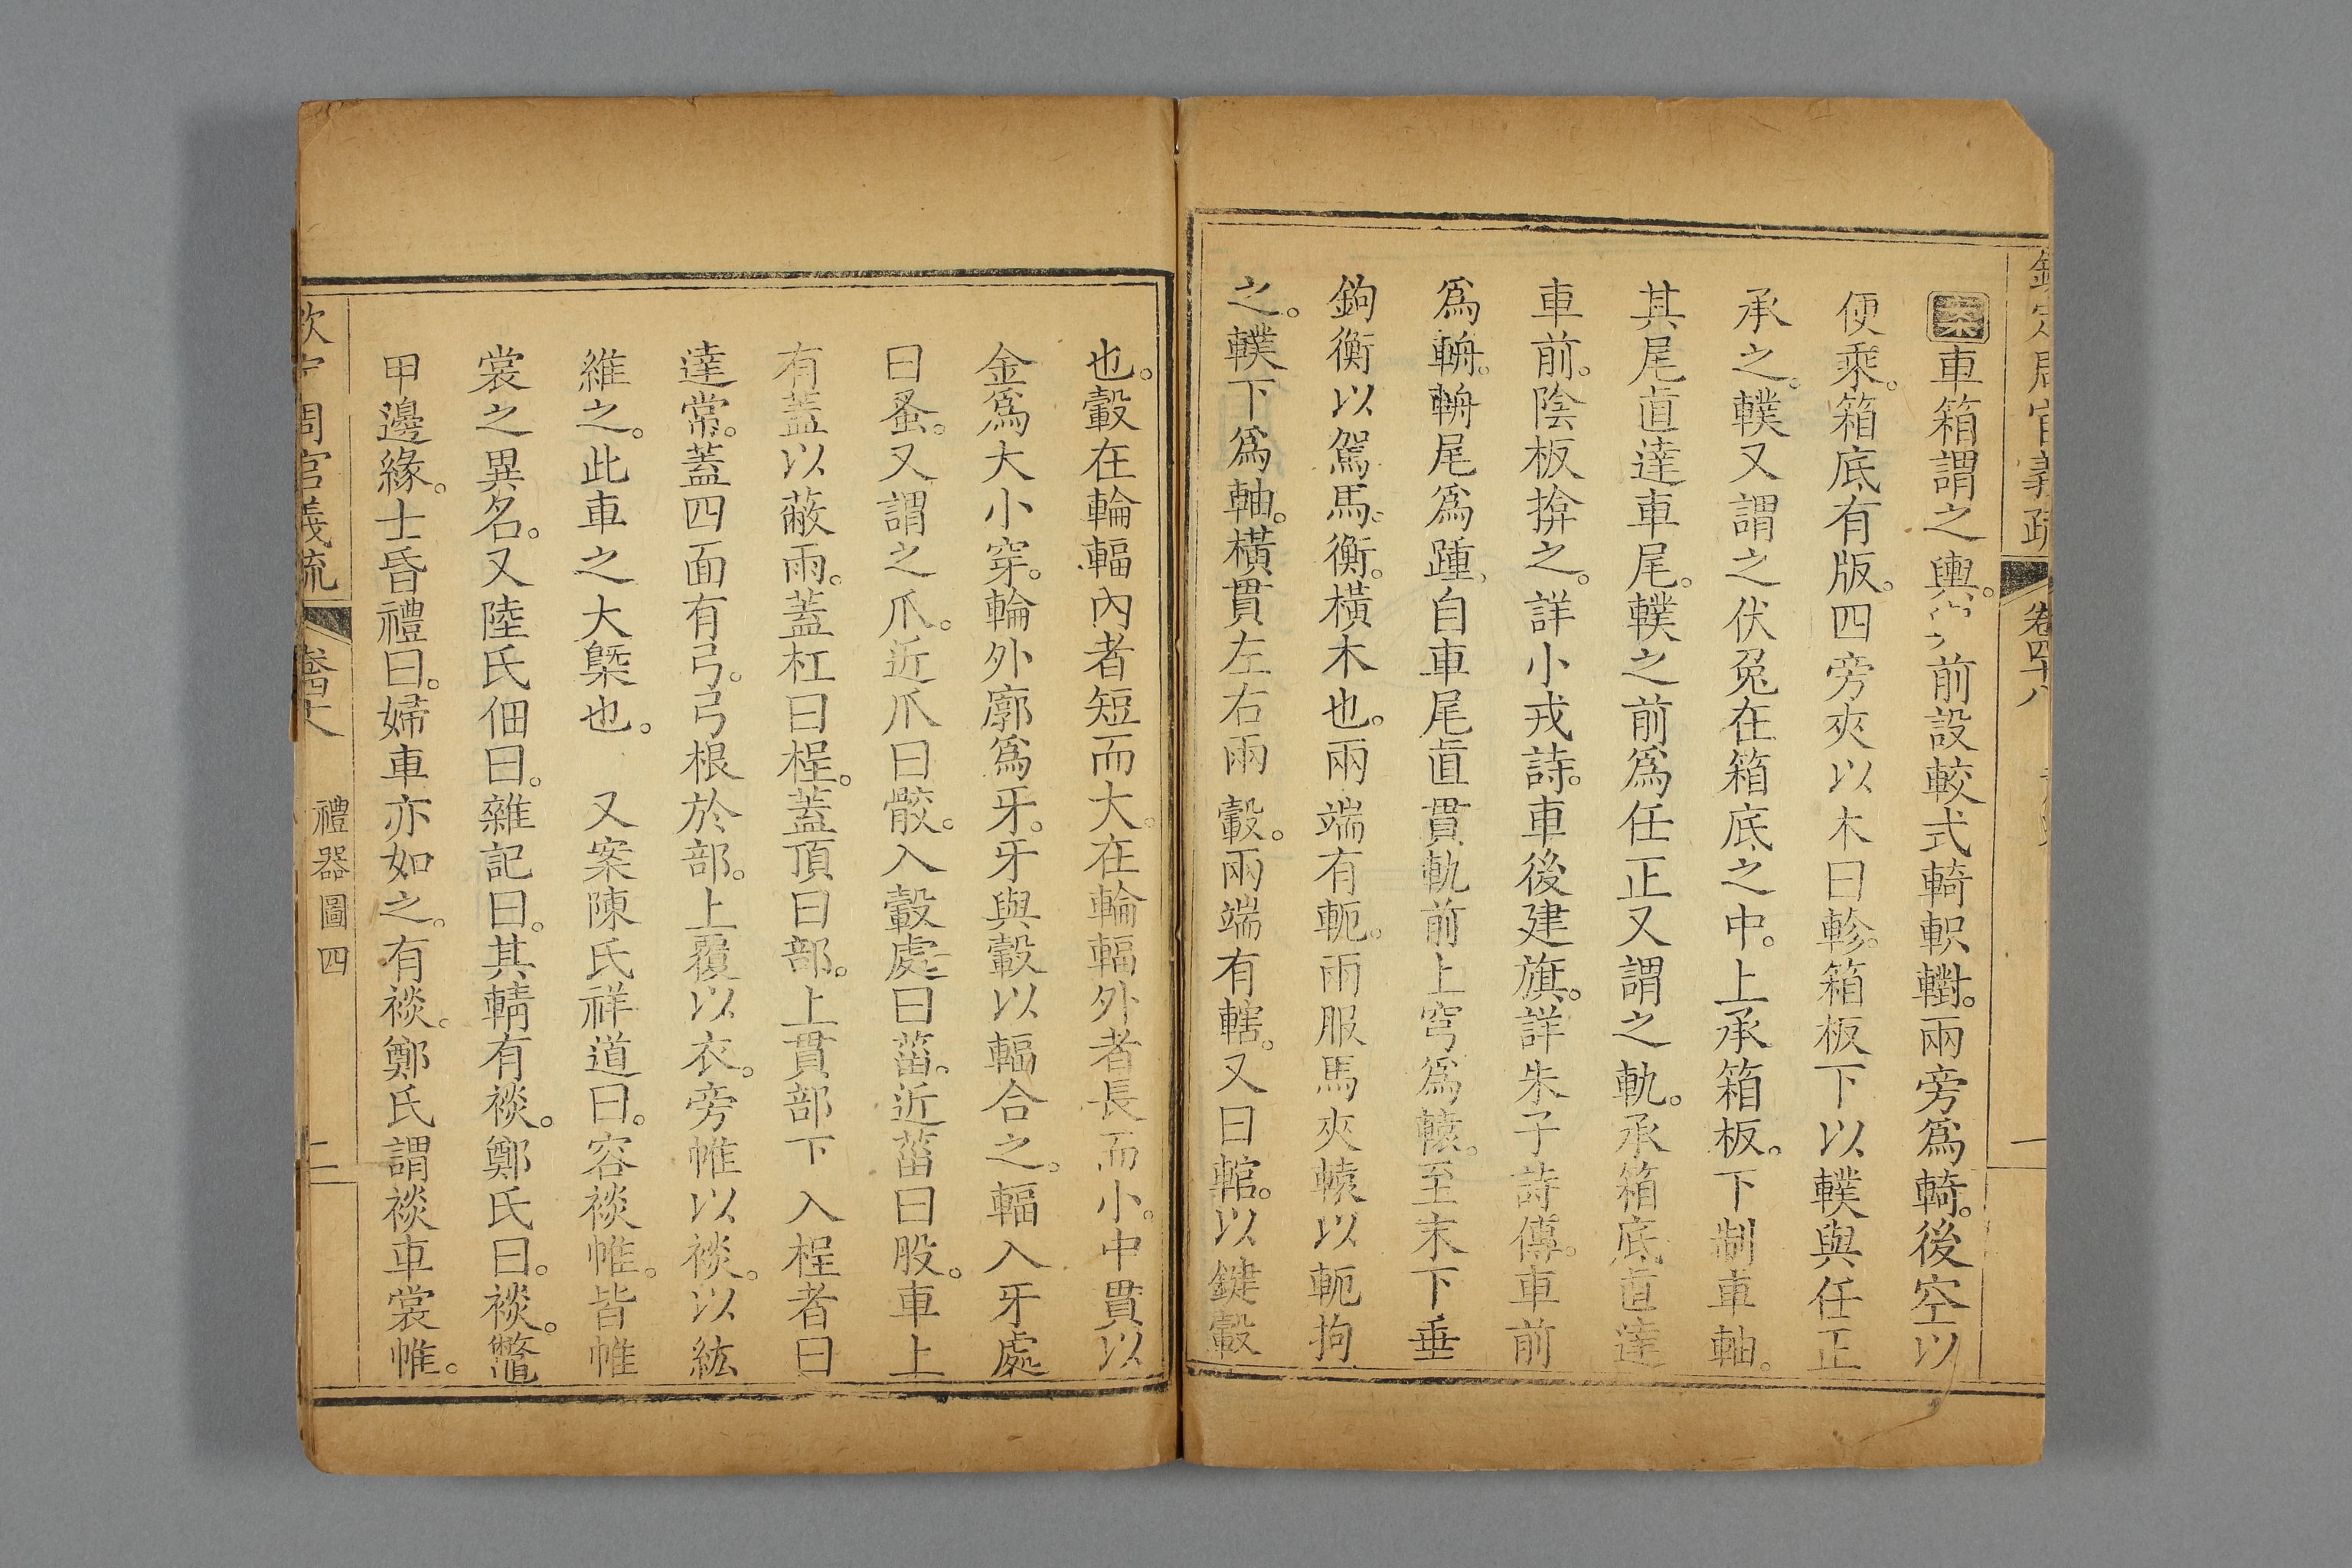 欽定周官義疏 卷四十八
案車箱謂之輿。前設較式輢軹轛。兩旁爲輢。後空以
便乘。箱底有版。四旁夾以木曰軫。箱板下以轐與任正
承之。轐又謂之伏兔在箱底之中。上承箱板。下制車軸。
其尾直達車尾。轐之前爲任正又謂之軌。承箱底直達
車前。陰板揜之。詳小戎詩。車後建旗。詳朱子詩傳。車前
爲輈。輈尾爲踵、自車尾直貫軌前上穹爲轅。至末下垂
鉤衡以駕馬。衡。橫木也。兩端有軛。兩服馬夾轅以軛拘
之。轐下爲軸。橫貫左右兩轂。兩端有轄。又曰輨。以鍵轂
也。轂在輪輻內者短而大。在輪輻外者長而小。中貫以
金爲大小穿。輪外廓爲牙。牙與轂以輻合之。輻入牙處
曰蚤。又謂之爪。近爪曰骹。入轂處曰菑。近菑曰股。車上
有蓋以蔽雨。蓋杠曰桯。蓋頂曰部。上貫部下入桯者曰
達常。蓋四面有弓。弓根於部。上覆以衣。旁帷以裧。以紘
維之。此車之大槩也。 又案陳氏祥道曰。容裧帷。皆帷
裳之異名。又陸氏佃曰。雜記曰。其輤有裧。鄭氏曰。裧。鼈
甲邊緣。士昏禮曰。婦車亦如之。有裧。鄭氏謂裧車裳帷。
欽定周官義疏 卷四十八 禮器圖四 二